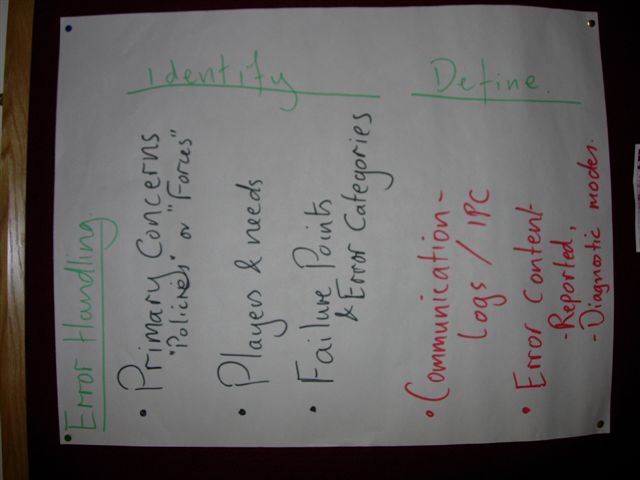 Error Handling.
Identify
• Primary Concerns
"Policies" or "Forces"
• Players & needs
• Failure Points
& Error Categories
Define.
• Communication -
Logs / IPC
• Error Content -
- Reported,
- Diagnostic modes.